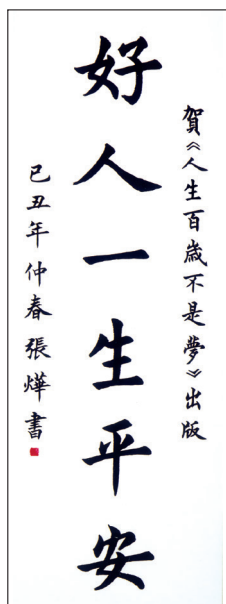 賀《人生百歲不是夢》出版
好人一生平安
己丑年仲春張燁書